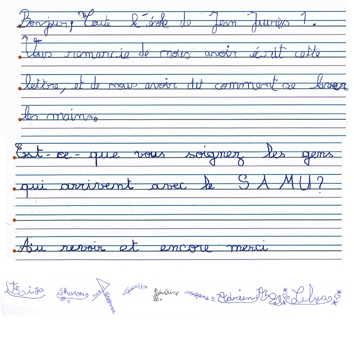 Bonjour, Toute l'école de Jean Jaurès 1.
Vous remercie de nous avoir écrit cette
lettre, et de nous avoir dit comment se laver
les mains.
Est-ce-que vous soignez les gens
qui arrivent avec le SAMU?
Au revoir et encore merci
Sharone Adrien Lilya